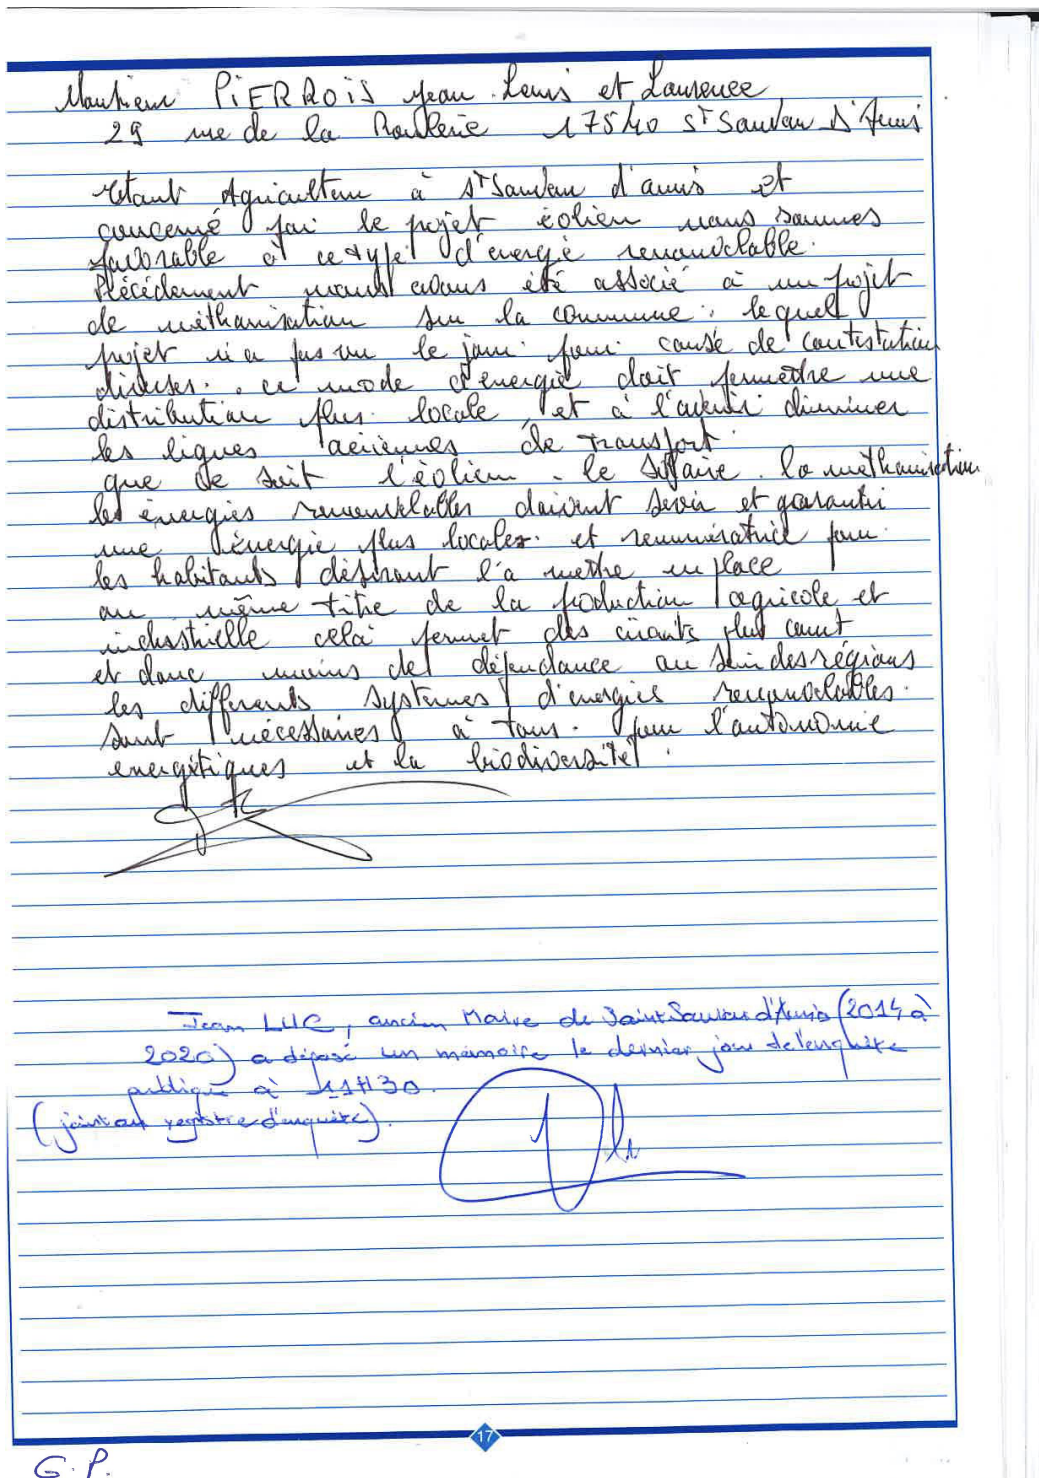 Monsieur PIERROIS Jean Louis et Laurence
29 rue de la Roulerie 17540 St Sauveur D'Aunis
étant Agriculteur à St Sauveur d'aunis et
concerné par le projet éolien nous sommes
favorable à ce type d'énergie renouvelable.
Précédement nous avons été associé à un projet
de méthanisation sur la commune, lequel
projet n'a pas vu le jour pour cause de contestation
diverses. ce mode d'énergie doit permettre une
distribution plus locale, et à l'avenir diminuer
les lignes aériennes de transport.
que se soit l'éolien. le solaire. la méthanisation
les énergies renouvelables doivent servir et garantir
une énergie plus locales. et rémunératrice pour
les habitants désirant l'a mettre en place
au même titre de la production agricole et
industrielle celà permet des circuits plus court
et donc moins de dépendance au sein des régions
les différents systèmes d'énergies renouvelables.
sont nécessaires à tous. pour l'autonomie
energétiques et la biodiversité.
Jean LUC, ancien Maire de Saint Sauveur d'Aunis (2014 à
2020) a déposé un mémoire le dernier jour de l'enquête
publique à 11H30.
(joint au registre d'enquête).
17
G. P.